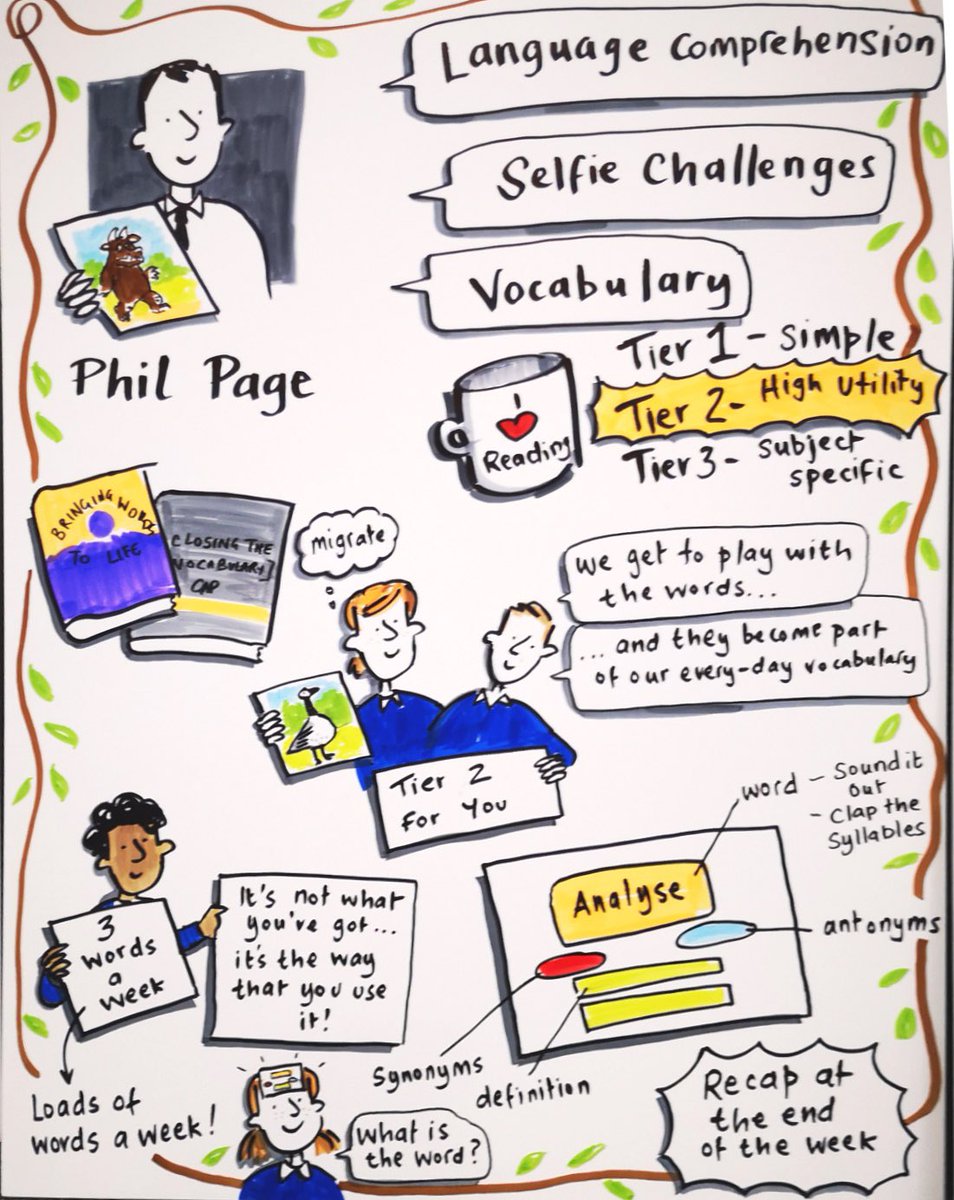 Language Comprehension
Selfie Challenges
Vocabulary
Phil Page
Tier 1 - Simple
Tier 2 - High Utility
Tier 3 - Subject
specific
I
Reading
BRINGING WORDS
TO LIFE
CLOSING THE
VOCABULARY
GAP
migrate
we get to play with
the words...
... and they become part
of our every-day vocabulary
Tier 2
For You
word - Sound it
out
- Clap the
Syllables
Analyse
antonyms
synonyms
definition
3
words
a
week
It's not what
you've got...
it's the way
that you use
it!
Loads of
words a week!
What is
the word?
Recap at
the end
of the week